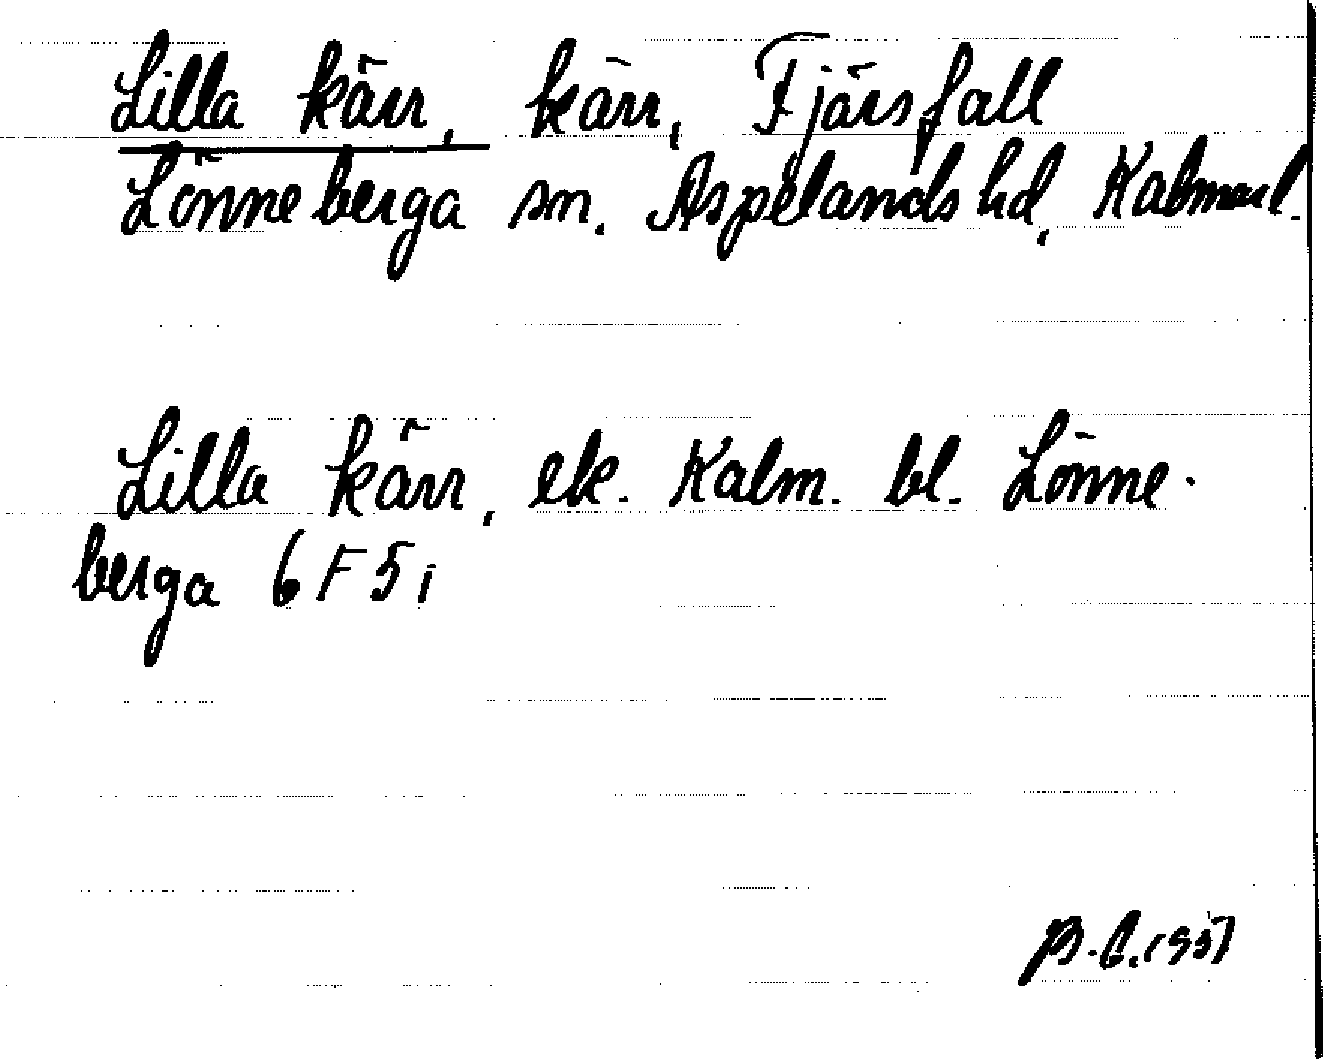 Lilla kärr, kärr, Fjärsfall
Lönneberga sn. Aspelands hd, Kalmarl.
Lilla kärr, ek. Kalm. bl. Lönne-
berga 6 F 5 i